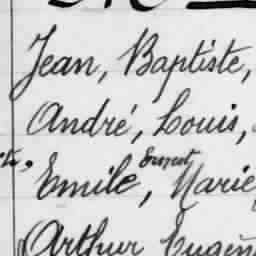 Jean, Baptiste,
André, Louis,
Ernest
Emile, Marie
Arthur Eugèn